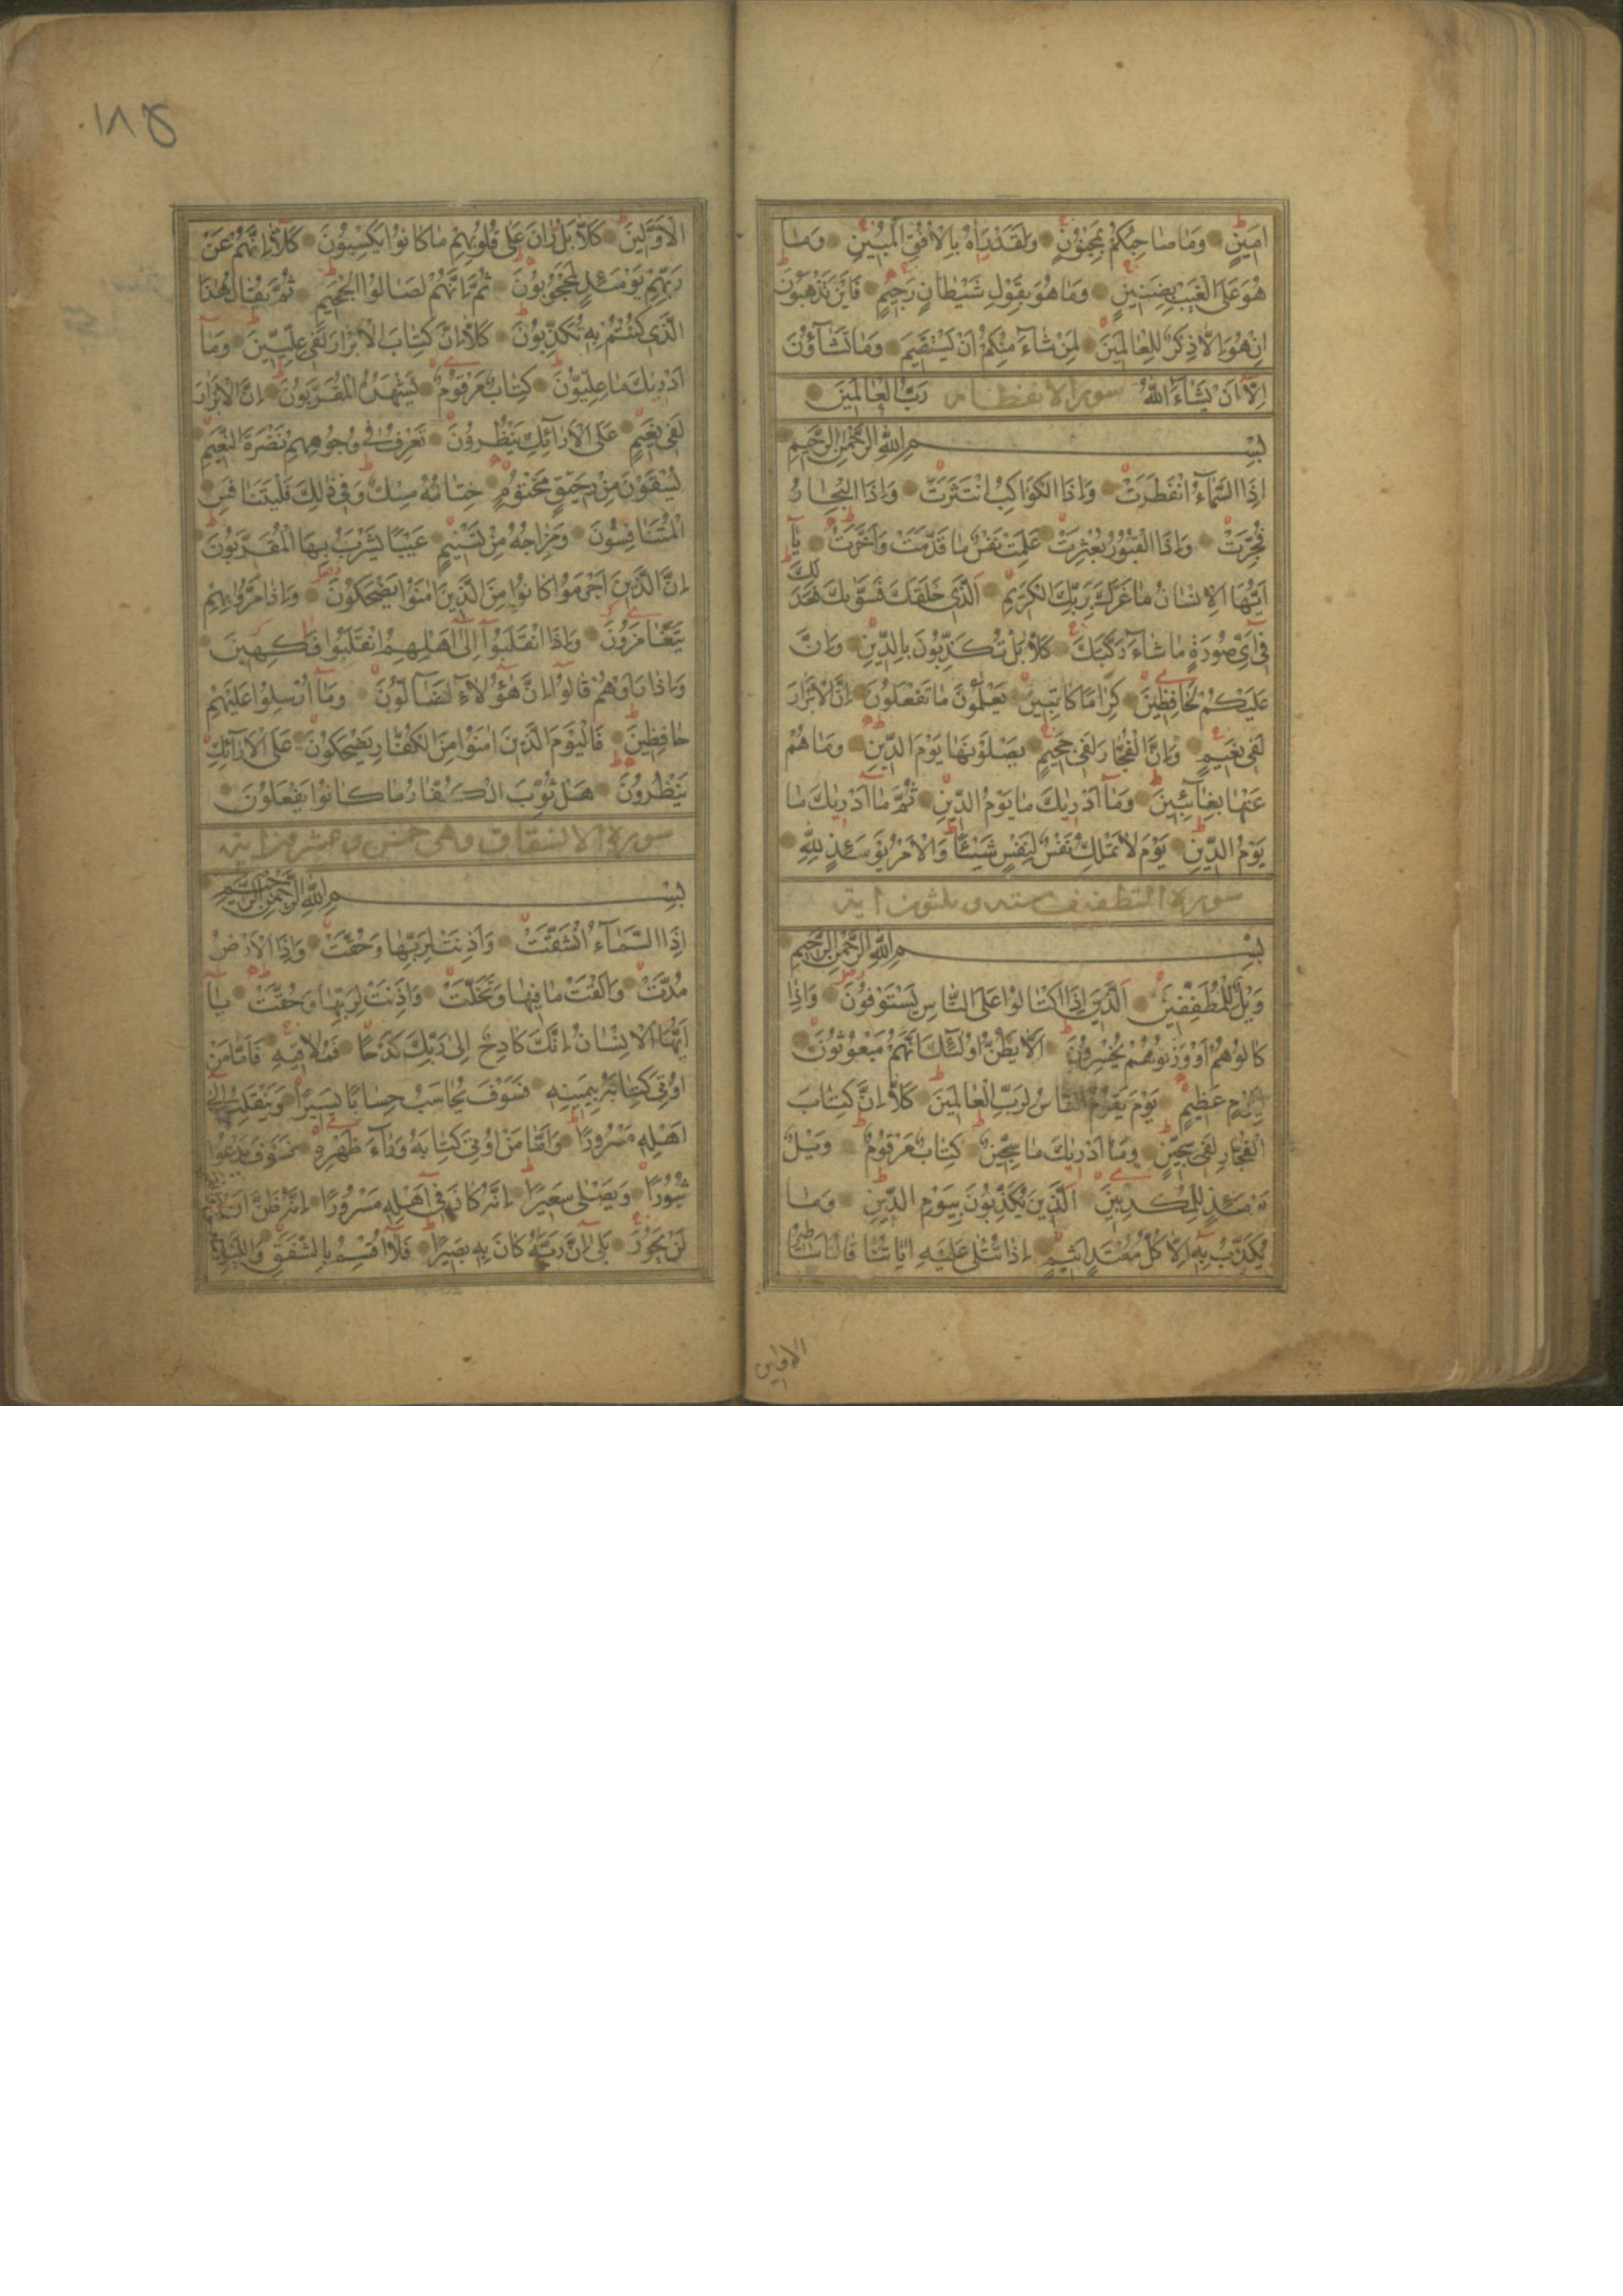 اَمِينٍ وَمَا صَاحِبُكُمْ بِمَجْنُونٍ وَلَقَدْ رَاٰهُ بِالْاُفُقِ الْمُبِينِ وَمَا
هُوَ عَلَى الْغَيْبِ بِضَنِينٍ وَمَا هُوَ بِقَوْلِ شَيْطَانٍ رَجِيمٍ فَاَيْنَ تَذْهَبُونَ
اِنْ هُوَ اِلَّا ذِكْرٌ لِلْعَالَمِينَ لِمَنْ شَاءَ مِنْكُمْ اَنْ يَسْتَقِيمَ وَمَا تَشَاؤُنَ
اِلَّا اَنْ يَشَاءَ اللّٰهُ رَبُّ الْعَالَمِينَ
سورة الانفطار
بِسْمِ اللّٰهِ الرَّحْمٰنِ الرَّحِيمِ
اِذَا السَّمَاءُ انْفَطَرَتْ وَاِذَا الْكَوَاكِبُ انْتَثَرَتْ وَاِذَا الْبِحَارُ
فُجِّرَتْ وَاِذَا الْقُبُورُ بُعْثِرَتْ عَلِمَتْ نَفْسٌ مَا قَدَّمَتْ وَاَخَّرَتْ يَا
اَيُّهَا الْاِنْسَانُ مَا غَرَّكَ بِرَبِّكَ الْكَرِيمِ اَلَّذِي خَلَقَكَ فَسَوّٰيكَ فَعَدَلَكَ
فِي اَيِّ صُورَةٍ مَا شَاءَ رَكَّبَكَ كَلَّا بَلْ تُكَذِّبُونَ بِالدِّينِ وَاِنَّ
عَلَيْكُمْ لَحَافِظِينَ كِرَامًا كَاتِبِينَ يَعْلَمُونَ مَا تَفْعَلُونَ اِنَّ الْاَبْرَارَ
لَفِي نَعِيمٍ وَاِنَّ الْفُجَّارَ لَفِي جَحِيمٍ يَصْلَوْنَهَا يَوْمَ الدِّينِ وَمَا هُمْ
عَنْهَا بِغَائِبِينَ وَمَا اَدْرٰيكَ مَا يَوْمُ الدِّينِ ثُمَّ مَا اَدْرٰيكَ مَا
يَوْمُ الدِّينِ يَوْمَ لَا تَمْلِكُ نَفْسٌ لِنَفْسٍ شَيْئًا وَالْاَمْرُ يَوْمَئِذٍ لِلّٰهِ
سورة التطفيف ستة وثلثون اية
بِسْمِ اللّٰهِ الرَّحْمٰنِ الرَّحِيمِ
وَيْلٌ لِلْمُطَفِّفِينَ اَلَّذِينَ اِذَا اكْتَالُوا عَلَى النَّاسِ يَسْتَوْفُونَ وَاِذَا
كَالُوهُمْ اَوْ وَزَنُوهُمْ يُخْسِرُونَ اَلَا يَظُنُّ اُولٰئِكَ اَنَّهُمْ مَبْعُوثُونَ
لِيَوْمٍ عَظِيمٍ يَوْمَ يَقُومُ النَّاسُ لِرَبِّ الْعَالَمِينَ كَلَّا اِنَّ كِتَابَ
الْفُجَّارِ لَفِي سِجِّينٍ وَمَا اَدْرٰيكَ مَا سِجِّينٌ كِتَابٌ مَرْقُومٌ وَيْلٌ
يَوْمَئِذٍ لِلْمُكَذِّبِينَ اَلَّذِينَ يُكَذِّبُونَ بِيَوْمِ الدِّينِ وَمَا
يُكَذِّبُ بِهِ اِلَّا كُلُّ مُعْتَدٍ اَثِيمٍ اِذَا تُتْلٰى عَلَيْهِ اٰيَاتُنَا قَالَ اَسَاطِيرُ
الاولين
١٨٤
الْاَوَّلِينَ كَلَّا بَلْ رَانَ عَلٰى قُلُوبِهِمْ مَا كَانُوا يَكْسِبُونَ كَلَّا اِنَّهُمْ عَنْ
رَبِّهِمْ يَوْمَئِذٍ لَمَحْجُوبُونَ ثُمَّ اِنَّهُمْ لَصَالُوا الْجَحِيمِ ثُمَّ يُقَالُ هٰذَا
الَّذِي كُنْتُمْ بِهِ تُكَذِّبُونَ كَلَّا اِنَّ كِتَابَ الْاَبْرَارِ لَفِي عِلِّيِّينَ وَمَا
اَدْرٰيكَ مَا عِلِّيُّونَ كِتَابٌ مَرْقُومٌ يَشْهَدُهُ الْمُقَرَّبُونَ اِنَّ الْاَبْرَارَ
لَفِي نَعِيمٍ عَلَى الْاَرَائِكِ يَنْظُرُونَ تَعْرِفُ فِي وُجُوهِهِمْ نَضْرَةَ النَّعِيمِ
يُسْقَوْنَ مِنْ رَحِيقٍ مَخْتُومٍ خِتَامُهُ مِسْكٌ وَفِي ذٰلِكَ فَلْيَتَنَافَسِ
الْمُتَنَافِسُونَ وَمِزَاجُهُ مِنْ تَسْنِيمٍ عَيْنًا يَشْرَبُ بِهَا الْمُقَرَّبُونَ
اِنَّ الَّذِينَ اَجْرَمُوا كَانُوا مِنَ الَّذِينَ اٰمَنُوا يَضْحَكُونَ وَاِذَا مَرُّوا بِهِمْ
يَتَغَامَزُونَ وَاِذَا انْقَلَبُوا اِلٰى اَهْلِهِمُ انْقَلَبُوا فَاكِهِينَ
وَاِذَا رَاَوْهُمْ قَالُوا اِنَّ هٰؤُلَاءِ لَضَالُّونَ وَمَا اُرْسِلُوا عَلَيْهِمْ
حَافِظِينَ فَالْيَوْمَ الَّذِينَ اٰمَنُوا مِنَ الْكُفَّارِ يَضْحَكُونَ عَلَى الْاَرَائِكِ
يَنْظُرُونَ هَلْ ثُوِّبَ الْكُفَّارُ مَا كَانُوا يَفْعَلُونَ
سورة الانشقاق وهى خمس وعشرون اية
بِسْمِ اللّٰهِ الرَّحْمٰنِ الرَّحِيمِ
اِذَا السَّمَاءُ انْشَقَّتْ وَاَذِنَتْ لِرَبِّهَا وَحُقَّتْ وَاِذَا الْاَرْضُ
مُدَّتْ وَاَلْقَتْ مَا فِيهَا وَتَخَلَّتْ وَاَذِنَتْ لِرَبِّهَا وَحُقَّتْ يَا
اَيُّهَا الْاِنْسَانُ اِنَّكَ كَادِحٌ اِلٰى رَبِّكَ كَدْحًا فَمُلَاقِيهِ فَاَمَّا مَنْ
اُوتِيَ كِتَابَهُ بِيَمِينِهِ فَسَوْفَ يُحَاسَبُ حِسَابًا يَسِيرًا وَيَنْقَلِبُ اِلٰى
اَهْلِهِ مَسْرُورًا وَاَمَّا مَنْ اُوتِيَ كِتَابَهُ وَرَاءَ ظَهْرِهِ فَسَوْفَ يَدْعُوا
ثُبُورًا وَيَصْلٰى سَعِيرًا اِنَّهُ كَانَ فِي اَهْلِهِ مَسْرُورًا اِنَّهُ ظَنَّ اَنْ
لَنْ يَحُورَ بَلٰى اِنَّ رَبَّهُ كَانَ بِهِ بَصِيرًا فَلَا اُقْسِمُ بِالشَّفَقِ وَاللَّيْلِ